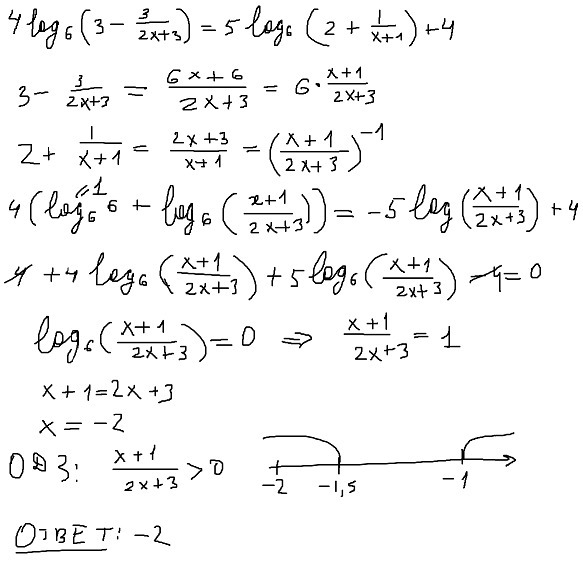 4 log₆ (3 − 3/(2x+3)) = 5 log₆ (2 + 1/(x+1)) + 4
3 − 3/(2x+3) = (6x+6)/(2x+3) = 6 · (x+1)/(2x+3)
2 + 1/(x+1) = (2x+3)/(x+1) = ((x+1)/(2x+3))⁻¹
4 (log₆ 6 + log₆ ((x+1)/(2x+3))) = −5 log ((x+1)/(2x+3)) + 4
=1
4 + 4 log₆ ((x+1)/(2x+3)) + 5 log₆ ((x+1)/(2x+3)) − 4 = 0
log₆ ((x+1)/(2x+3)) = 0 ⇒ (x+1)/(2x+3) = 1
x + 1 = 2x + 3
x = −2
ОДЗ: (x+1)/(2x+3) > 0
−2 −1,5 −1
ОТВЕТ: −2